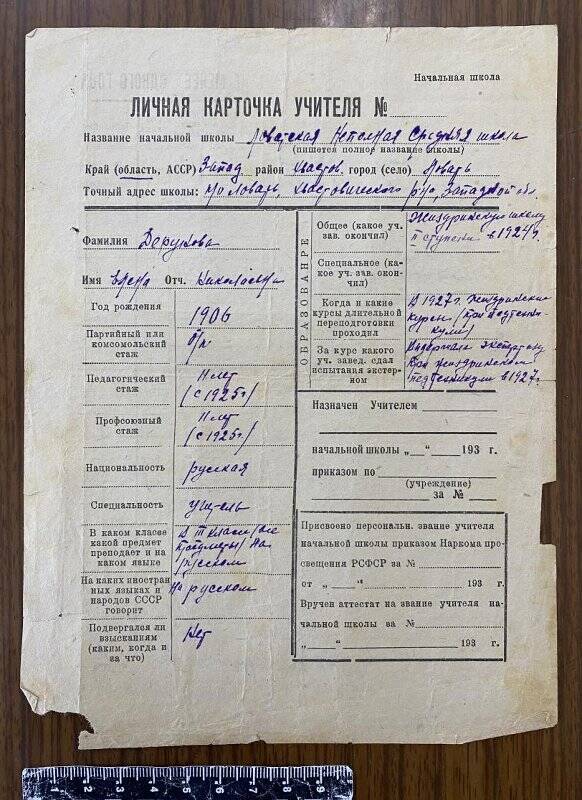 Начальная школа
ЛИЧНАЯ КАРТОЧКА УЧИТЕЛЯ №
Название начальной школы Ловатская Неполная Средняя школа
(пишется полное название школы)
Край (область, АССР) Запад. район Хвастов. город (село) Ловать
Точный адрес школы: Ловать, Хвастовичского р-на, Западной обл
Фамилия Дорукова
Имя Елена Отч. Николаевна
Год рождения 1906
Партийный или комсомольский стаж б/п
Педагогический стаж 11 лет (с 1925 г)
Профсоюзный стаж 11 лет (с 1925 г.)
Национальность русская
Специальность учитель
В каком классе какой предмет преподает и на каком языке В III классе /все предметы/ на русском
На каких иностранных языках и народов СССР говорит На русском
Подвергался ли взысканиям (каким, когда и за что) Нет
ОБРАЗОВАНИЕ
Общее (какое уч. зав. окончил) Жиздринскую школу II ступени в 1924 г.
Специальное (какое уч. зав. окончил)
Когда и какие курсы длительной переподготовки проходил В 1927 г. Жиздринские курсы /при педтехникуме/
За курс какого уч. завед. сдал испытания экстерном экстерном при Жиздринском педтехникуме в 1927 г.
Назначен Учителем
начальной школы „ “ 193 г.
приказом по
(учреждение)
за №
Присвоено персональн. звание учителя
начальной школы приказом Наркома про-
свещения РСФСР за №
от „ “ 193 г.
Вручен аттестат на звание учителя на-
чальной школы за №
„ “ 193 г.
1 2 3 4 5 6 7 8 9